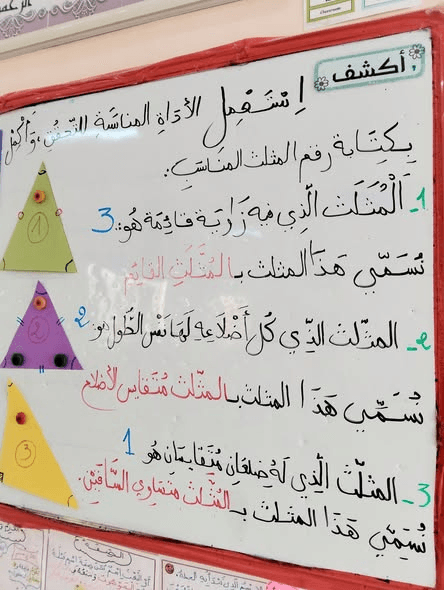 أكتشف
إسْتَعْمِل الأدَاةِ المناسَبَةِ للتَّحَقُّق، وَأكْمِلْ
بِكِتَابَة رقم المثلث المُنَاسِبِ:
1- اَلْمُثَلَّث الَّذِي فِيهِ زَاوِيَة قَائِمَة هُوَ: 3
نُسَمِّي هَذَا المثلث بـ المُثَلَّثِ القَائِم
2- المثلّث الذِّي كُلّ أَضْلَاعِهِ لَهَا نَفْسُ الطُّول هو: 2
نُسَمِّي هَذَا المثلث بـ المثلّث مُتَقَايس الأضلاع
3- المثلّث الَّذِي لَهُ ضلعَانِ مُتَقَايِسَانِ هُو 1
نُسَمِّي هَذَا المثلث بـ المُثلّث متساوي السَّاقَيْنِ.
1
2
3